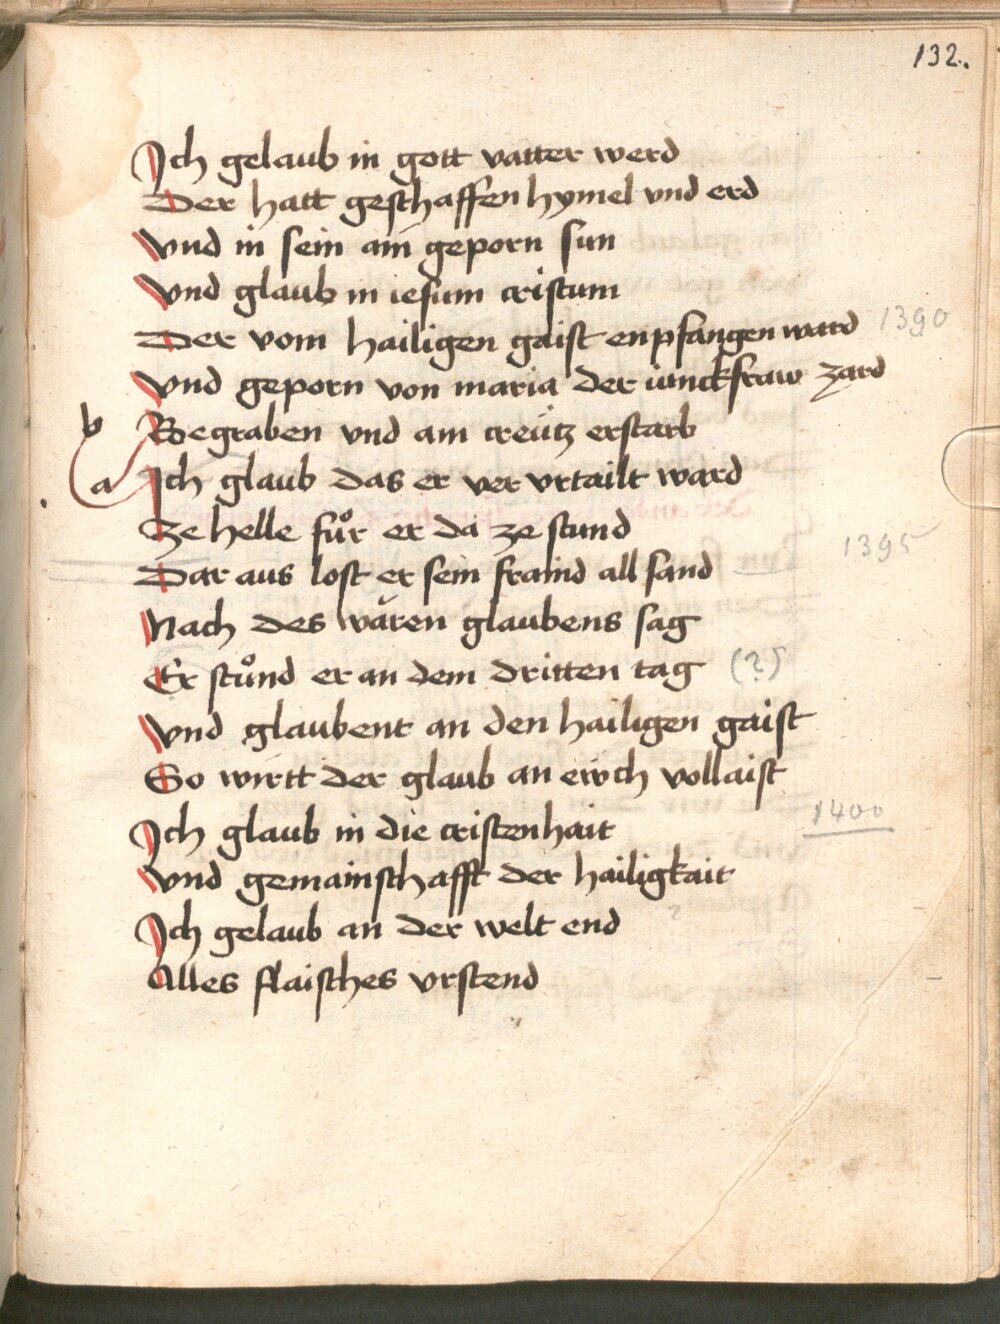 132.
Ich gelaub in gott vatter werd
Der hatt geschaffen hymel vnd erd
Vnd in sein ain geporn sun
Vnd glaub in iesum cristum
Der vom hailigen gaist enpfangen ward 1390
Vnd geporn von maria der iunckfraw zard
b Begraben vnd am creütz erstarb
a Ich glaub das er ver vrtailt ward
Ze helle fuͦr er da ze stund
Dar aus lost er sein fraind all sand 1395
Nach des wären glaubens sag
Er stuͦnd er an dem dritten tag (?)
Vnd glaubent an den hailigen gaist
So wirtt der glaub an ewch vollaist
Ich glaub in die cristenhait 1400
Vnd gemainschafft der hailigkait
Ich gelaub an der welt end
Alles flaisches vrstend